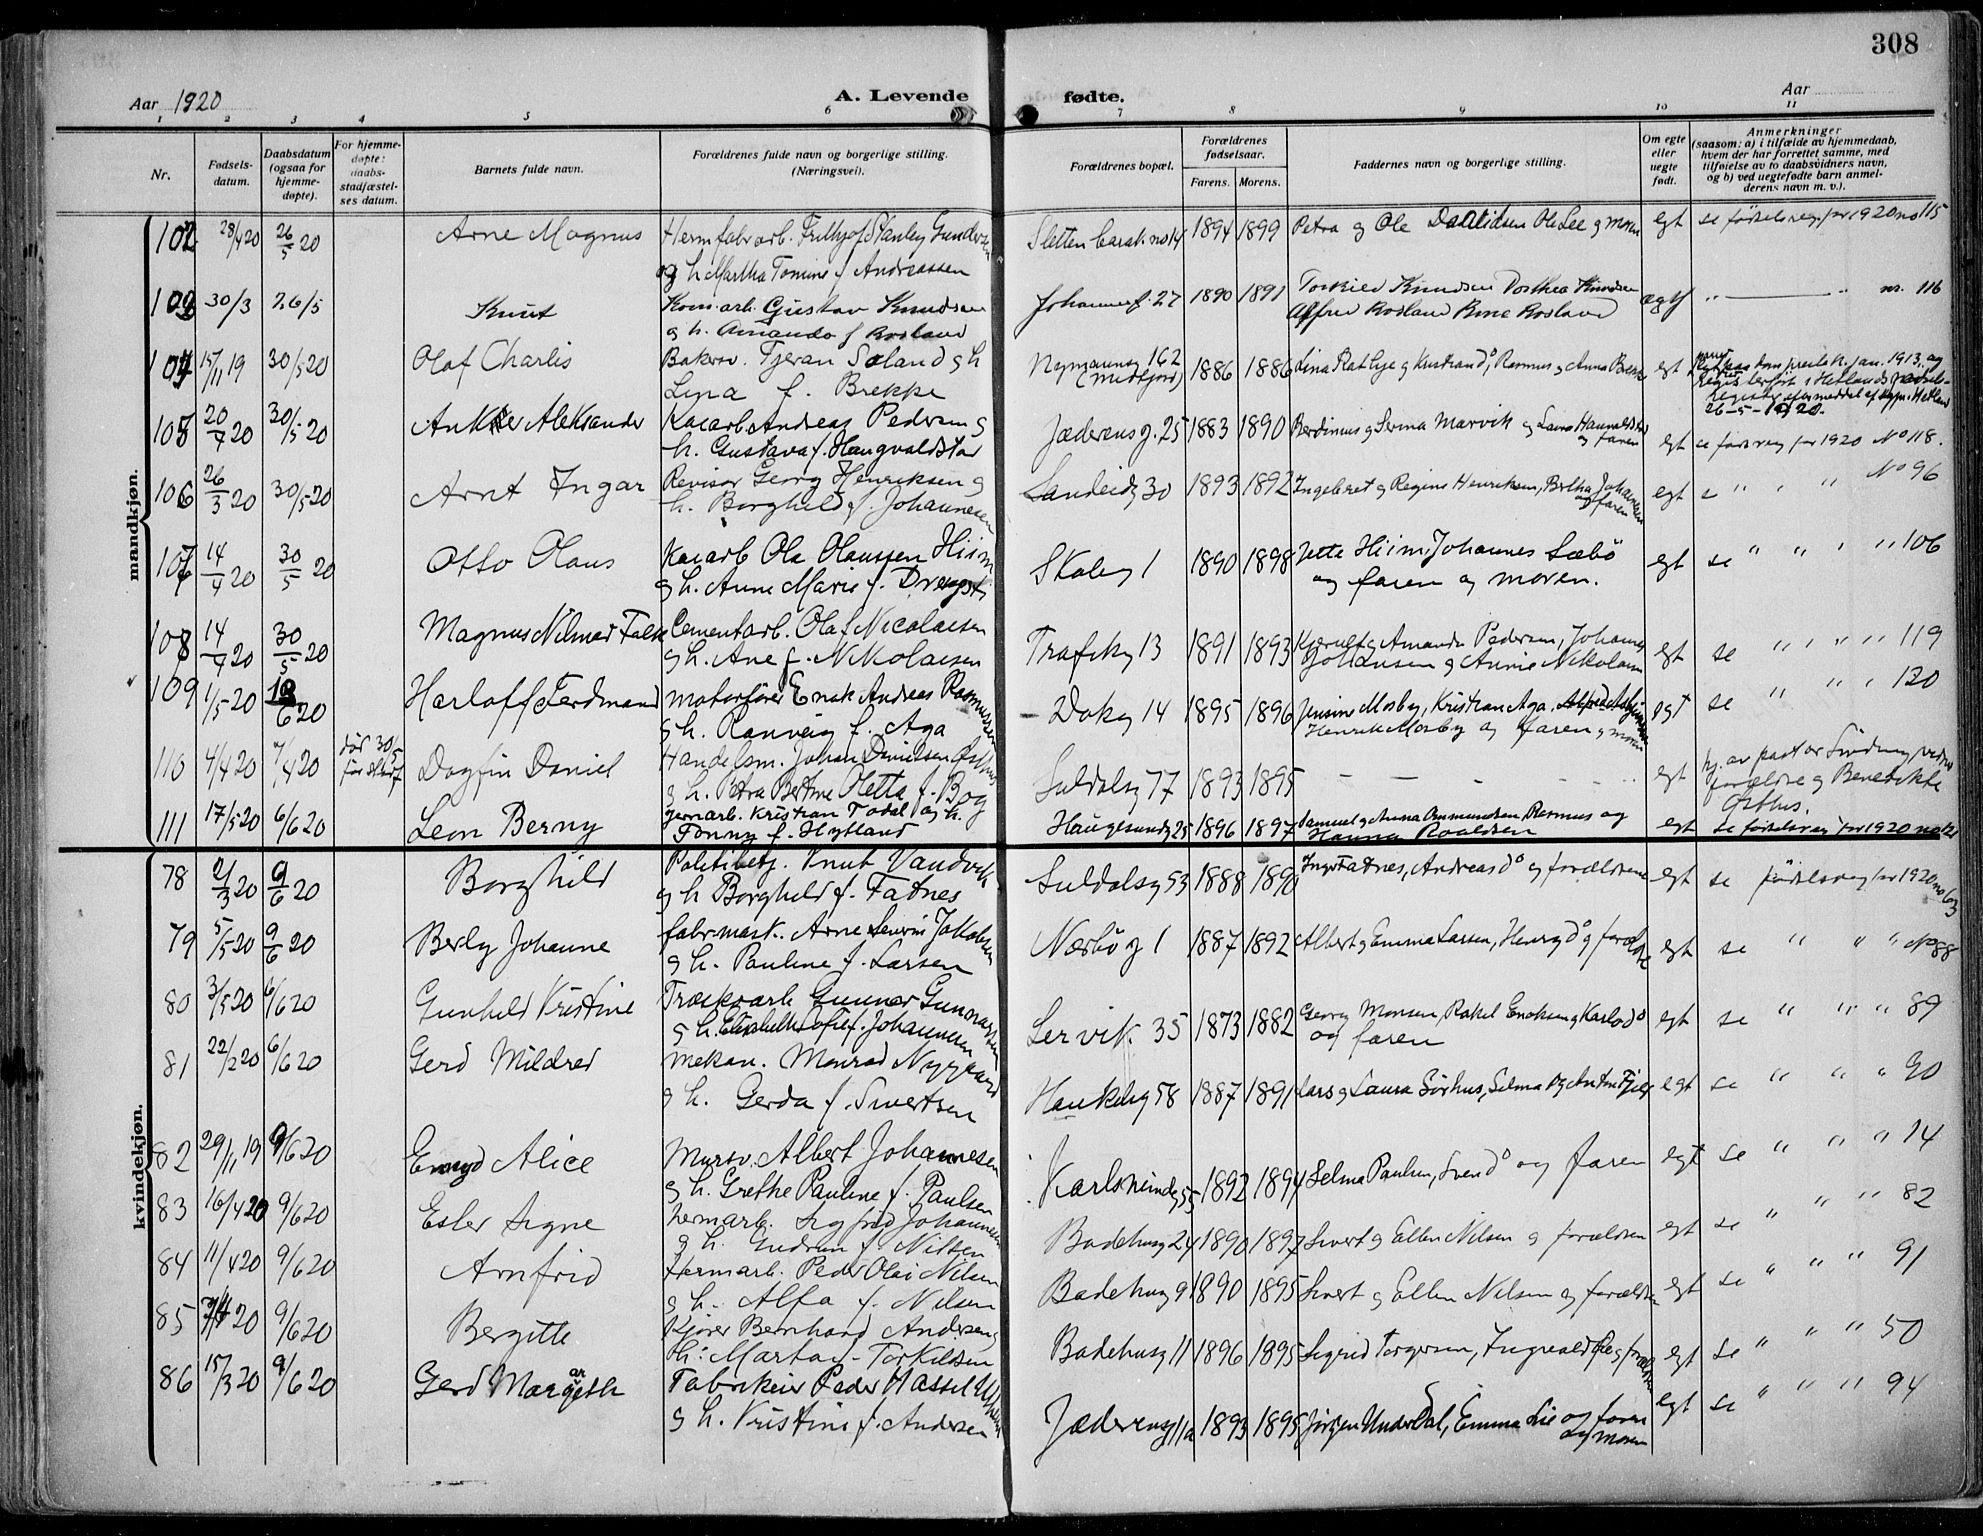 308
Aar 1920
A. Levende fødte.
Aar
1 2 3 4 5 6 7 8 9 10 11
Nr.
Fødsels-
datum.
Daabsdatum
(ogsaa for
hjemme-
døpte).
For hjemme-
døpte:
daabs-
stadfæstel-
ses datum.
Barnets fulde navn.
Forældrenes fulde navn og borgerlige stilling.
(Næringsvei).
Forældrenes bopæl.
Forældrenes
fødselsaar.
Farens. Morens.
Faddernes navn og borgerlige stilling.
Om egte
eller
uegte
født.
Anmerkninger
(saasom: a) i tilfælde av hjemmedaab,
hvem der har forrettet samme, med
tilføielse av to daabsvidners navn,
og b) ved uegtefødte barn anmel-
derens navn m. v.).
mandkjøn.
102 28/4 20 26/5 20 Arne Magnus Hermfabrarb. Frithjof Stanley Gundersen Sletten barak no 14 1894 1899 Petra og Ole Davidsen Ole Lee og moren egt se fødselsreg for 1920 no 115
og h. Martha Tomine f. Andreassen
103 30/3 26/5 Knut Kom.arb. Gustav Knudsen Johannesg. 27 1890 1891 Torkild Knudsen Dorthea Knudsen ægtf " " nr. 116
g h. Amanda f Rosland Alfred Rosland Rine Rosland
104 15/11 19 30/5 20 Olaf Charlis Bakerv. Tjeran Søland g h Nymannsg 162 1886 1886 Lina Rathje g Kristian do Rasmus g Anna Brekke egt
Lina f. Brekke (Midtfjord) 26-5-1920.
105 20/4 20 30/5 20 Anker Aleksander Kaiarb Andreas Pedersen g Jæderensg. 25 1883 1890 Berdinius g Serina Marvik og Laura Haugvaldstad og faren egt se føds reg for 1920 No 118.
h. Gustava f. Haugvaldstad
106 26/3 20 30/5 20 Arnt Ingar Revisor Georg Henriksen g Sandeidg 30 1893 1892 Ingebret g Regine Henriksen, Bertha Johannesen og faren egt s " " " No 96
h. Borghild f. Johannesen
107 14/4 20 30/5 20 Otto Olaus Kaiarb Ola Olaussen Hiim Skoleg 1 1890 1898 Jette Hiim, Johannes Sæbö egt se " " " " 106
g h. Anne Marie f. Drengst og faren og moren.
108 14/4 20 30/5 20 Magnus Nilmar Falk Cementarb. Olaf Nicolaisen Trafikg 13 1891 1893 Kjerulf g Amanda Pedersen, Johannes egt se " " " 119
g h. Ane f. Nikolaisen Johansen g Annie Nikolaisen
109 1/5 20 6 20 Harloff Ferdinand motorfører Enok Andreas Rasmussen Dokg 14 1895 1896 Jensine Mosby, Kristian Aga, egt se " " " 120
g h. Ranveig f. Aga Henrik Mosby og faren g moren
110 4/4 20 7/4 20 dör 30/5 för stadf Dagfin Daniel Handelsm. Johan Danielsen Østhus Suldalsg 77 1893 1895 - - - - egt hj. av pastor Sindung, vidner
g h. Petra Bertine Oletta f. Bog forældre og Benedikte Østhus.
111 17/5 20 6/6 20 Leon Berny jernarb. Kristian Todal og h. Haugesundg 25 1896 1897 Samuel g Anna Asmundsen Rasmus og egt se fødselsreg for 1920 no 121
Fonny f. Hytland Hanna Roaldsen
kvindekjøn.
78 2/3 20 9/6 20 Borghild Politibetj. Knut Vandvik Suldalsg 53 1888 1890 Inga Fatnes, Andreas do og forældrene egt se fødselsreg for 1920 no 63
g h Borghild f. Fatnes
79 5/5 20 9/6 20 Berly Johanne fabr.mask. Arne Severin Jakobsen Nærbö g 1 1887 1892 Albert g Emma Larsen, Henry do g forældre egt se " " " No 88
g h. Pauline f. Larsen
80 3/5 20 6/6 20 Gunhild Kristine Træskoarb Gunnar Gunnarssen Lervik. 35 1873 1882 Georg Monsen, Rakel Enoksen g Karl do egt se " " " 89
g h. Elisabeth Sofie f. Johannesen og faren
81 22/2 20 6/6 20 Gerd Mildred mekan. Monrad Nygaard Haukeligg 58 1887 1891 Lars g Laura Sörhus, Selma og Anton Fjeld egt se " " " 90
g h. Gerda f. Sivertsen
82 29/11 19 9/6 20 Enny Alice Murer Albert Johannesen Karlsminneg 55 1892 1894 Selma Paulsen, Svend do og faren egt se " " " 14
g h. Grethe Pauline f. Paulsen
83 16/4 20 9/6 20 Ester Signe hermarb. Sigfrid Johannesen Badehusg 24 1890 1897 Sivert g Ellen Nilsen g forældrene egt se " " " 82
g h. Gudrun f. Nilsen
84 11/4 20 9/6 20 Arnfrid Hermarb. Peder Olai Nilsen Badehusg 9 1890 1895 Sivert g Ellen Nilsen og forældrene egt se " " " 91
g h. Alfa f. Nilsen
85 20 9/6 20 Bergitte Kjører Bernhard Andersen g Badehusg 11 1896 1895 Sigrid Torgersen, Ingvald egt se " " " 50
h: Marta f. Torkildsen
86 15/3 20 9/6 20 Gerd Margareth Fabrikeier Peder Hassel Jæderensg 11a 1893 1895 Jörgen Underdal, Emma Lie og faren og moren egt se " " " 94
g h. Kristine f. Andersen